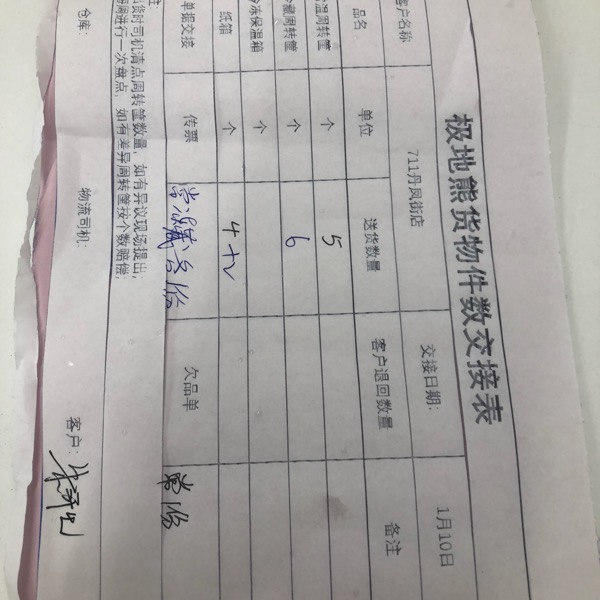 极地熊货物件数交接表
客户名称 711丹凤街店 交接日期: 1月10日
品名 单位 送货数量 客户退回数量 备注
温周转筐 个 5
冷藏周转筐 个 6
冷冻保温箱 个
纸箱 个 4+2
单据交接 传票 常温藏各1份 欠品单 常1份
货时司机清点周转筐数量,如有异议现场提出;
周进行一次盘点,如有差异周转筐按个数赔偿;
仓库: 物流司机: 客户: